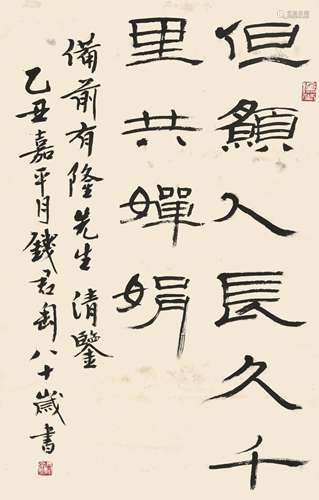 但願人長久千
里共嬋娟
備前有隆先生 清鑒
乙丑嘉平月錢君匋八十歲書